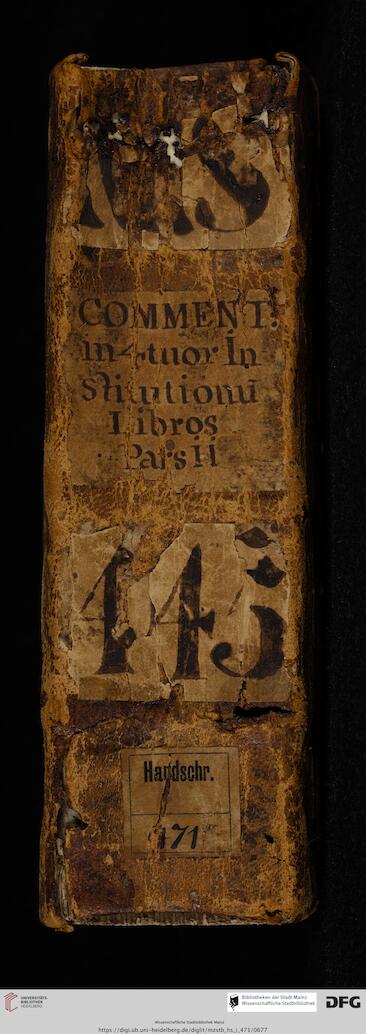 MS
COMMENT:
in 4tuor In
stitutionū
Libros
Pars II
445
Handschr.
471
UNIVERSITÄTS-
BIBLIOTHEK
HEIDELBERG
Bibliotheken der Stadt Mainz
Wissenschaftliche Stadtbibliothek
DFG
Wissenschaftliche Stadtbibliothek Mainz
https://digi.ub.uni-heidelberg.de/diglit/mzstb_hs_i_471/0677